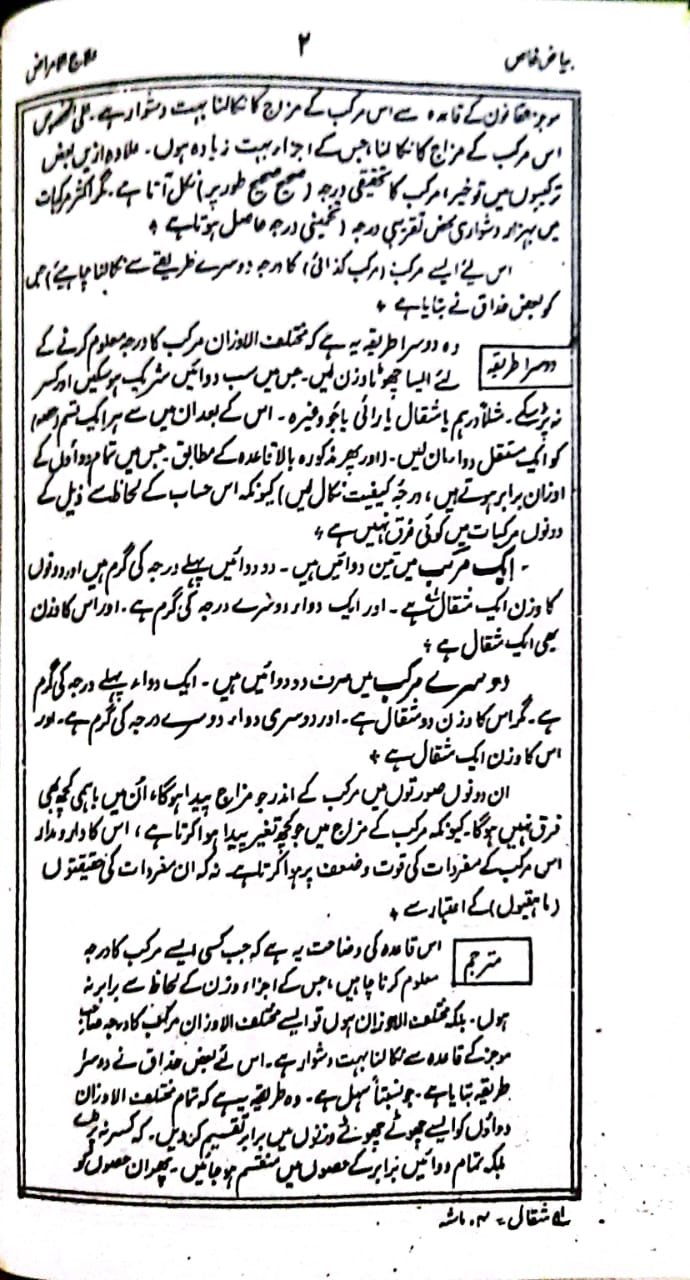 بیاض خاص
۲
علاج الامراض
موجز القانون کے قاعدہ سے اس مرکب کے مزاج کا نکالنا بہت دشوار ہے۔ علی الخصوص
اس مرکب کے مزاج کا نکالنا، جس کے اجزاء بہت زیادہ ہوں۔ علاوہ ازیں بعض
ترکیبوں میں تو خیر، مرکب کا تحقیقی درجہ (صحیح صحیح طور پر) نکل آتا ہے۔ مگر اکثر مرکبات
میں بہزار دشواری محض تقریبی درجہ (تخمینی درجہ) حاصل ہوتا ہے ٭
اس لئے ایسے مرکب (مرکب کذائی) کا درجہ دوسرے طریقے سے نکالنا چاہیئے) جس
کو بعض حذاق نے بتایا ہے ٭
دوسرا طریقہ
وہ دوسرا طریقہ یہ ہے کہ مختلف الاوزان مرکب کا درجہ معلوم کرنے کے
لئے ایسا چھوٹا وزن لیں۔ جس میں سب دوائیں شریک ہو سکیں اور کسر
نہ پڑ سکے۔ مثلاً درہم یا مثقال یا رائی یا جَو وغیرہ۔ اس کے بعد ان میں سے ہر ایک قسم (حصہ)
کو ایک مستقل دوا مان لیں۔ (اور پھر مذکورہ بالا قاعدہ کے مطابق۔ جس میں تمام دواؤں کے
اوزان برابر ہوتے ہیں، درجۂ کیفیت نکال لیں) کیونکہ اس حساب کے لحاظ سے ذیل کے
دونوں مرکبات میں کوئی فرق نہیں ہے ٭
۔ ایک مرکب میں تین دوائیں ہیں۔ دو دوائیں پہلے درجہ کی گرم ہیں اور دونوں
کا وزن ایک مثقال ہے۔ اور ایک دواء دوسرے درجہ کی گرم ہے۔ اور اس کا وزن
بھی ایک مثقال ہے ٭
دوسرے مرکب میں صرف دو دوائیں ہیں۔ ایک دواء پہلے درجہ کی گرم
ہے۔ مگر اس کا وزن دو مثقال ہے۔ اور دوسری دواء دوسرے درجہ کی گرم ہے۔ اور
اس کا وزن ایک مثقال ہے ٭
ان دونوں صورتوں میں مرکب کے اندر جو مزاج پیدا ہوگا، اُن میں باہمی کچھ بھی
فرق نہیں ہوگا۔ کیونکہ مرکب کے مزاج میں جو کچھ تغیر پیدا ہوا کرتا ہے، اس کا دار و مدار
اس مرکب کے مفردات کی قوت و ضعف پر ہوا کرتا ہے۔ نہ کہ ان مفردات کی حقیقتوں
(ماہیتوں) کے اعتبار سے ٭
مترجم
اس قاعدہ کی وضاحت یہ ہے کہ جب کسی ایسے مرکب کا درجہ
معلوم کرنا چاہیں، جس کے اجزاء وزن کے لحاظ سے برابر نہ
ہوں۔ بلکہ مختلف الاوزان ہوں تو ایسے مختلف الاوزان مرکب کا درجہ صاحبِ
موجز کے قاعدہ سے نکالنا بہت دشوار ہے۔ اس لئے بعض حذاق نے دوسرا
طریقہ بتایا ہے۔ جو نسبتاً سہل ہے۔ وہ طریقہ یہ ہے کہ تمام مختلف الاوزان
دواؤں کو ایسے چھوٹے چھوٹے وزنوں میں برابر تقسیم کر دیں۔ کہ کسر نہ پڑے
بلکہ تمام دوائیں برابر کے حصوں میں منقسم ہو جائیں۔ پھر ان حصوں کو
مثقال = ۴ ماشہ